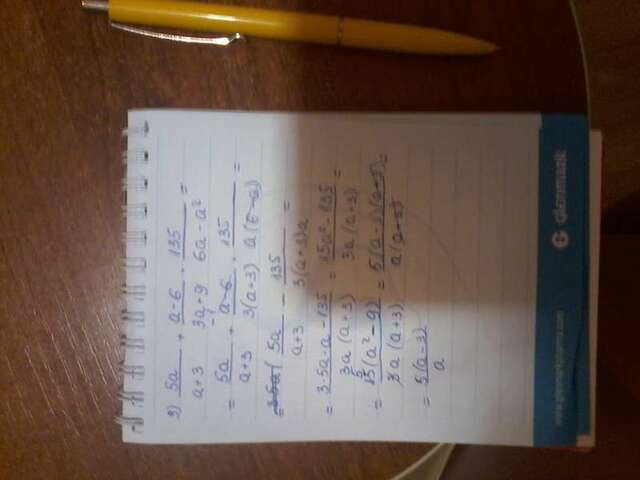 9) 5a/(a+3) + (a-6)/(3a+9) · 135/(6a-a²) =
= 5a/(a+3) + (a-6)/(3(a+3)) · 135/(a(6-a)) =
= 5a/(a+3) - 135/(3(a+3)a) =
= (3·5a·a-135)/(3a(a+3)) = (15a²-135)/(3a(a+3)) =
= 15(a²-9)/(3a(a+3)) = 5(a-3)(a+3)/(a(a+3)) =
= 5(a-3)/a
www.glenmarkpharma.com glenmark